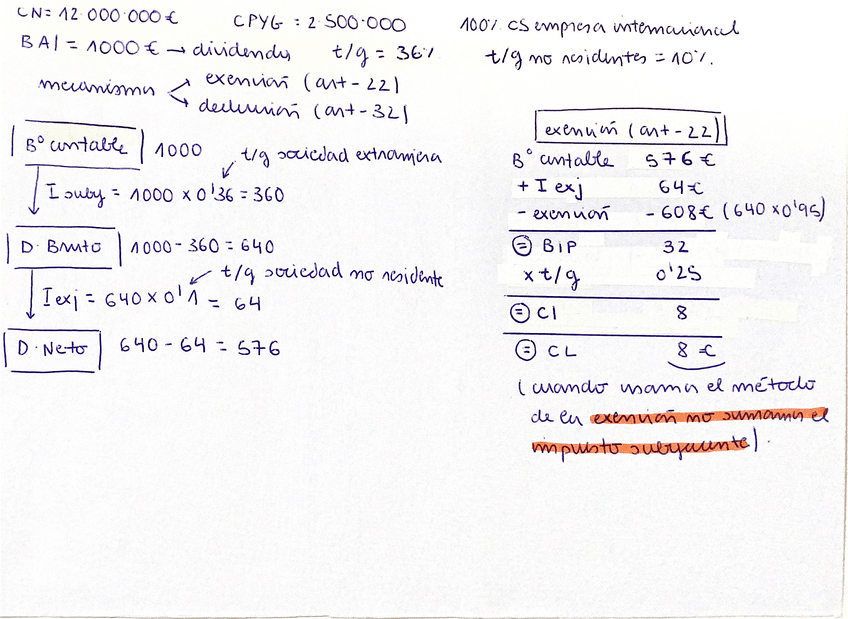 CN= 12.000.000€ CPYG : 2.500.000
BAI = 1000 € → dividendos t/g = 36%
mecanismos exención (art-22)
deducción (art-32)
Bº contable 1000
t/g sociedad extranjera
I suby = 1000 x 0'36 = 360
D. Bruto 1000-360 = 640
t/g sociedad no residente
I exj = 640 x 0'1 = 64
D. Neto 640 - 64 = 576
100% CS empresa internacional
t/g no residentes = 10%.
exención (art-22)
Bº contable 576€
+ I exj 64€
- exención - 608€ (640 x0'95)
= BIP 32
x t/g 0'25
= CI 8
= CL 8 €
(cuando usamos el método
de la exención no sumamos el
impuesto subyacente).